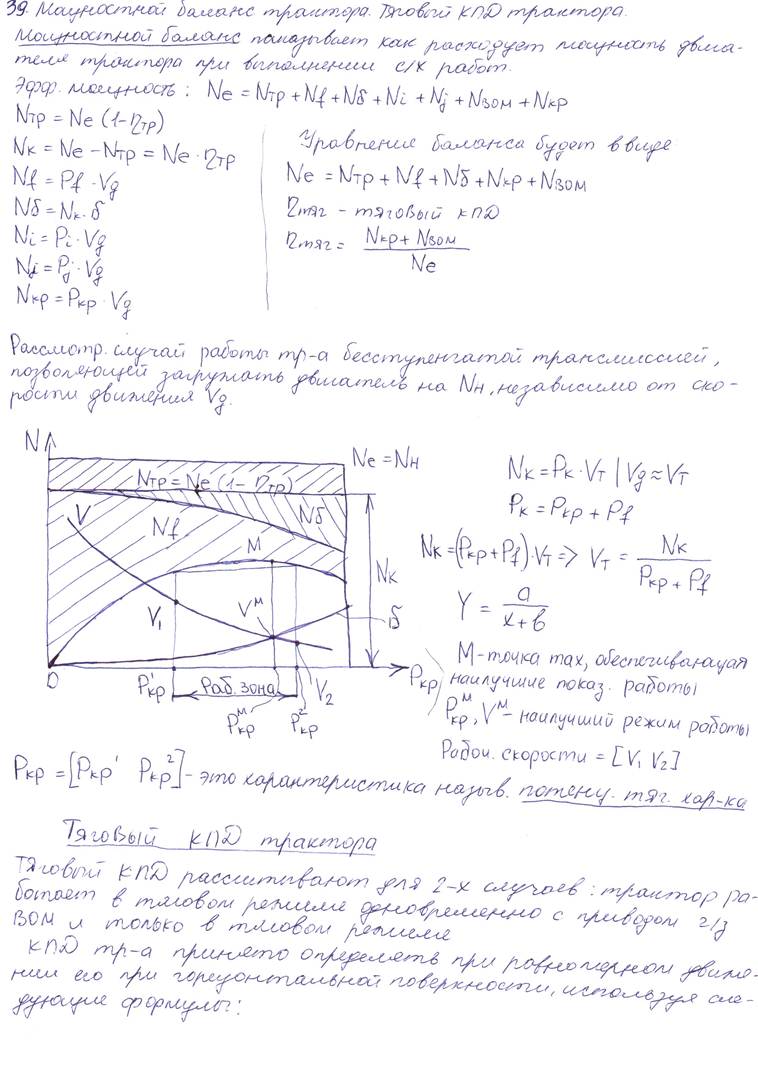 39. Мощностной баланс трактора. Тяговый КПД трактора.
Мощностной баланс показывает как расходует мощность двига-
теля трактора при выполнении с/х работ.
Эфф. мощность: Ne = Nтр + Nf + Nδ + Ni + Nj + Nвом + Nкр
Nтр = Ne (1-ηтр)
Nк = Ne - Nтр = Ne · ηтр
Nf = Pf · Vg
Nδ = Nк · δ
Ni = Pi · Vg
Nj = Pj · Vg
Nкр = Pкр · Vg
Уравнения баланса будет в виде
Ne = Nтр + Nf + Nδ + Nкр + Nвом
ηтяг - тяговый КПД
ηтяг = Nкр + Nвом / Ne
Рассмотр. случай работы тр-а бесступенчатой трансмиссией,
позволяющей загружать двигатель на Nн, независимо от ско-
рости движения Vg.
N
Ne = Nн
Nтр = Ne (1-ηтр)
V
Nf
Nδ
M
Nк
V₁
Vᴹ
δ
0
P'кр
Раб. зона
V₂
Pкр
Pᴹкр
P²кр
Nк = Pк · Vт | Vg ≈ Vт
Pк = Pкр + Pf
Nк = (Pкр + Pf) · Vт => Vт = Nк / Pкр + Pf
Y = a / x + b
M - точка max, обеспечивающая
наилучшие показ. работы
Pᴹкр, Vᴹ - наилучший режим работы
Рабоч. скорости = [V₁ V₂]
Pкр = [Pкр' Pкр²] - это характеристика назыв. потенц. тяг. хар-ка
Тяговый КПД трактора
Тяговый КПД рассчитывают для 2-х случаев: трактор ра-
ботает в тяговом режиме одновременно с приводом ч/з
ВОМ и только в тяговом режиме
КПД тр-а принято определять при равномерном движе-
нии его при горизонтальной поверхности, используя сле-
дующие формулы: